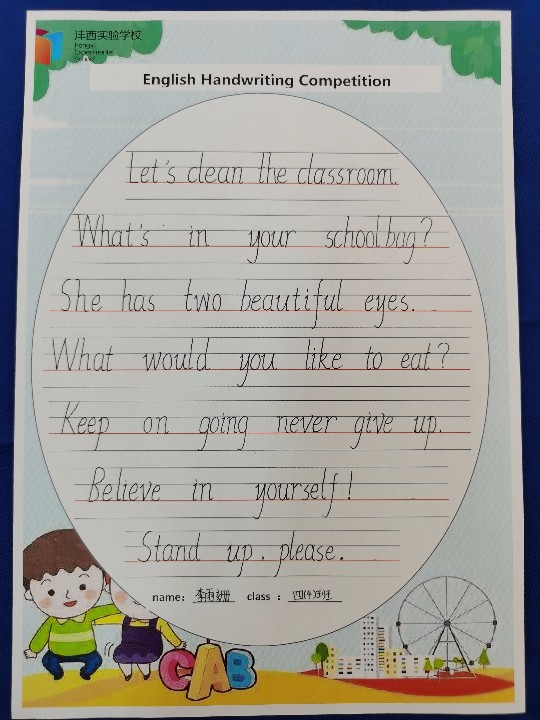 沣西实验学校
Fengxi
Experimental
School
English Handwriting Competition
Let's clean the classroom.
What's in your schoolbag?
She has two beautiful eyes.
What would you like to eat?
Keep on going never give up.
Believe in yourself!
Stand up. please.
name: 李雨姗 class: 四(4)班
CAB